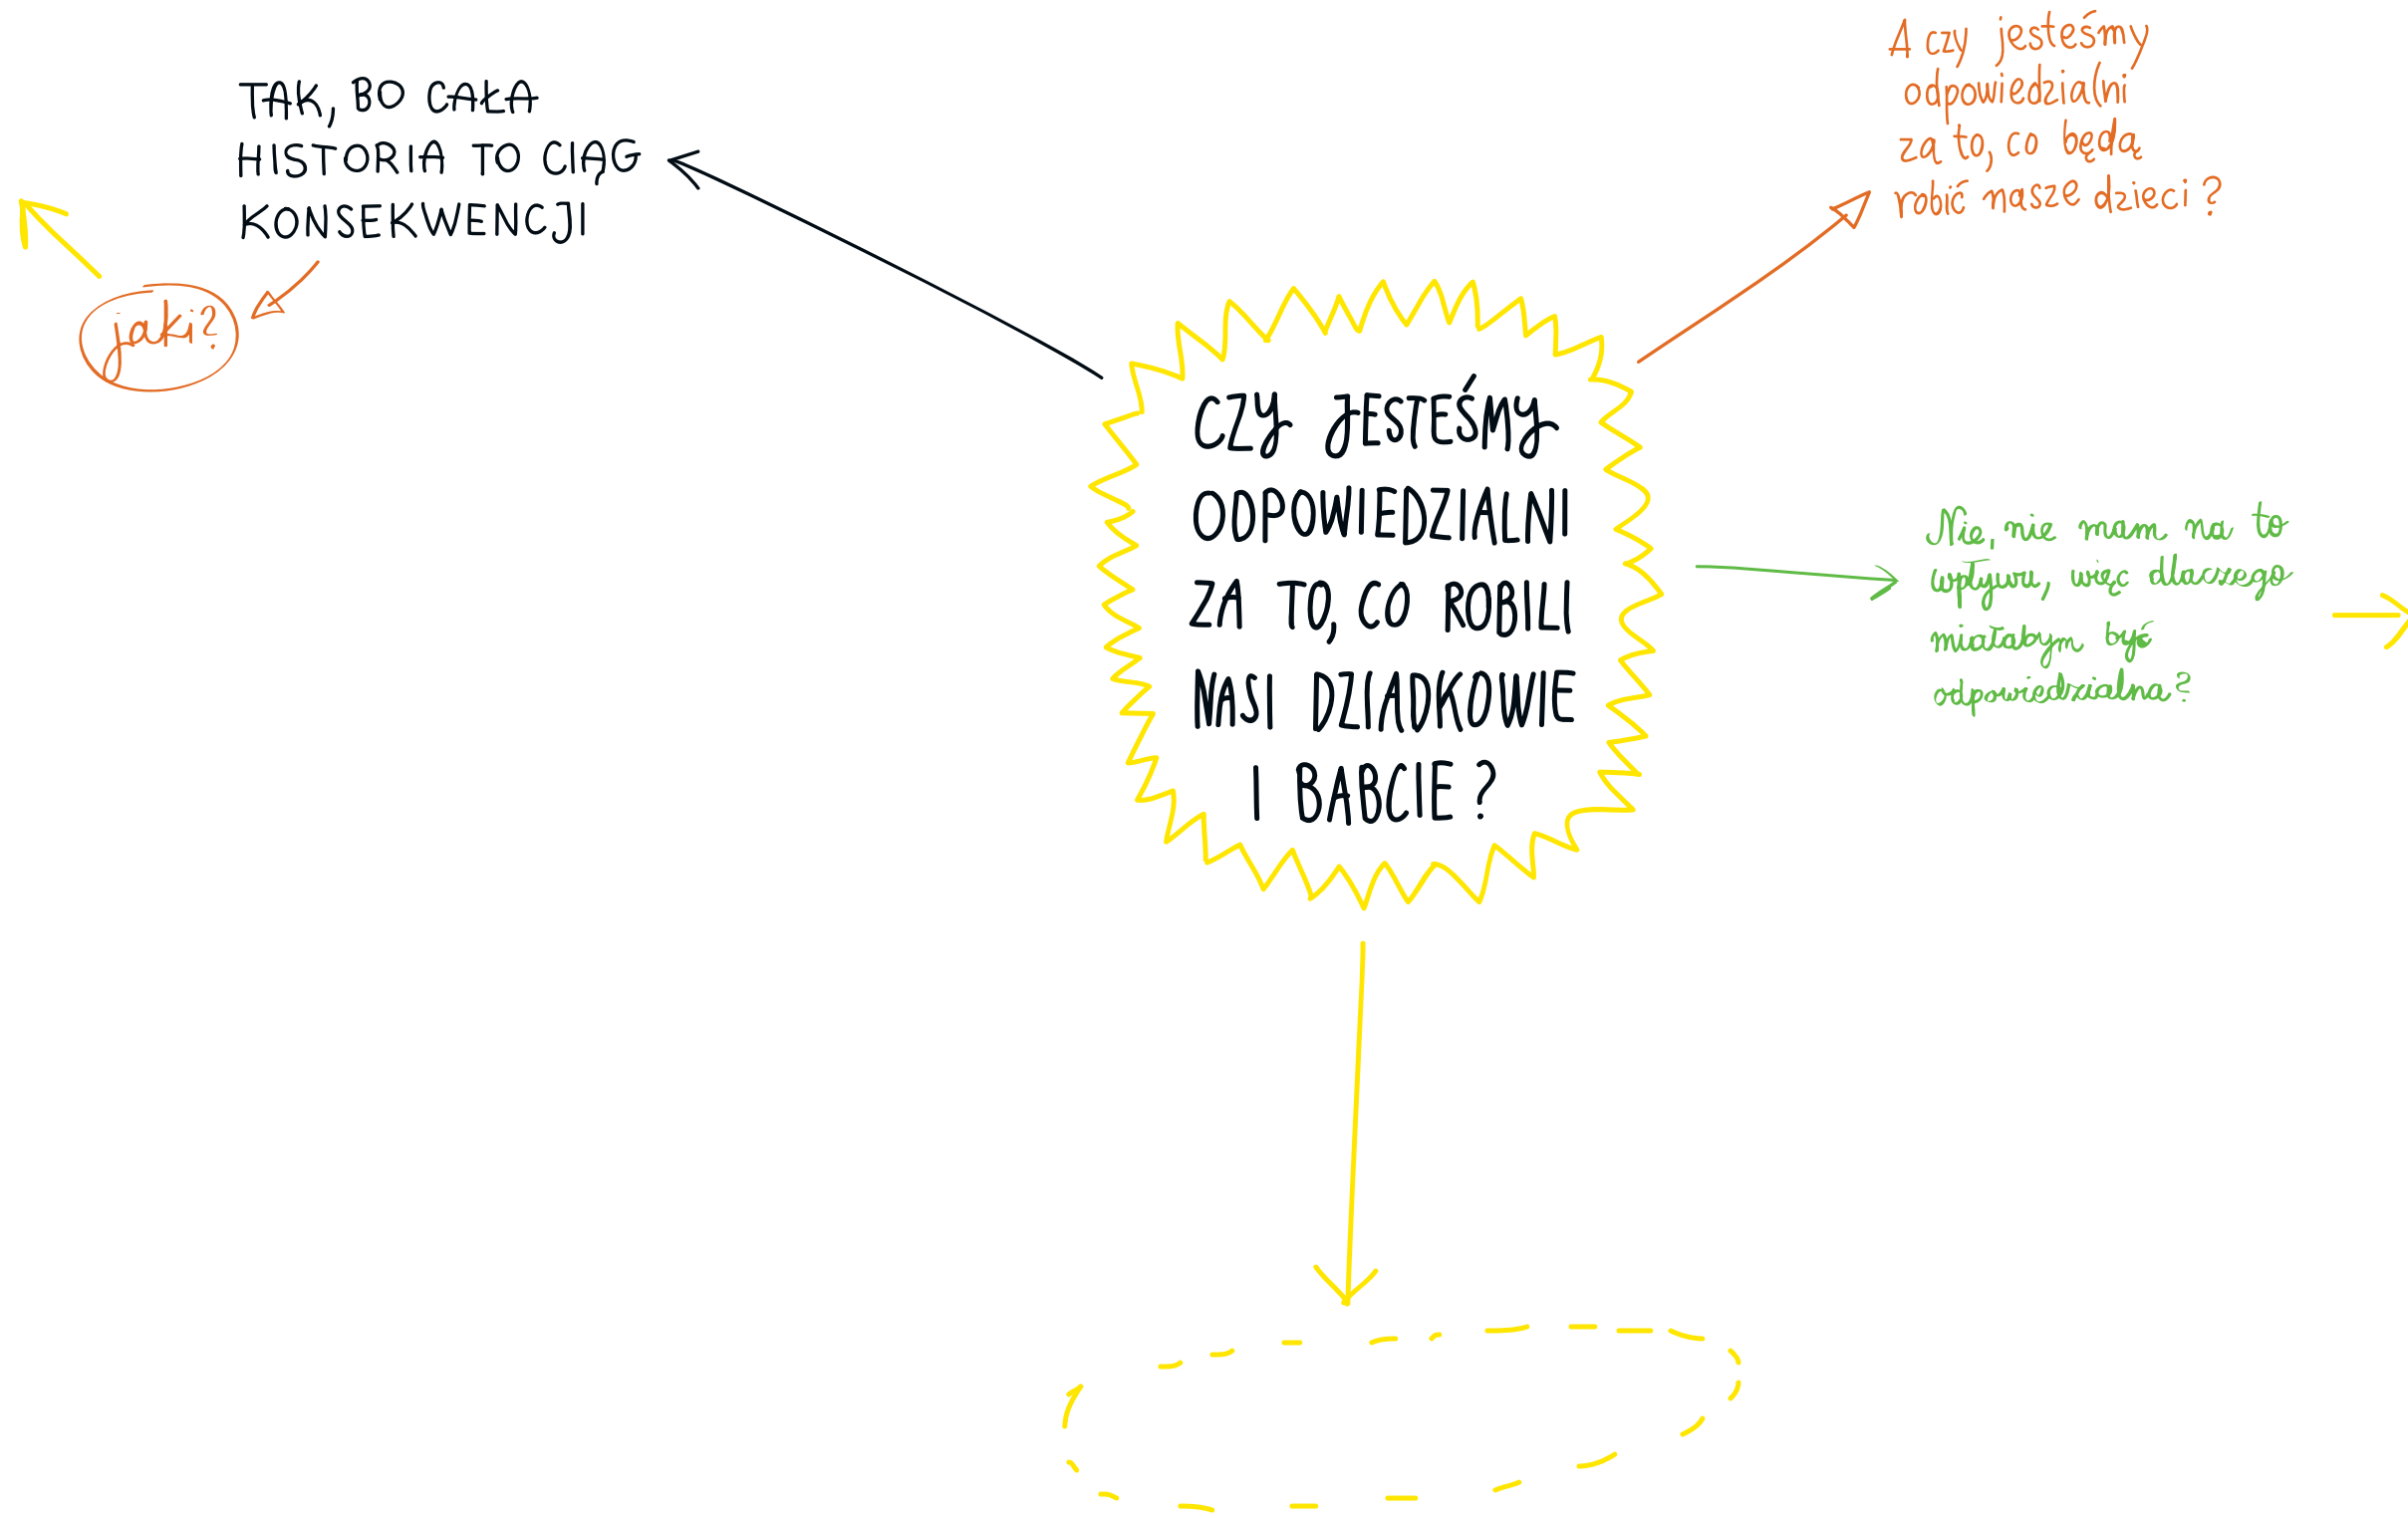 TAK, BO CAŁA
HISTORIA TO CIĄG
KONSEKWENCJI
jaki?
CZY JESTEŚMY
ODPOWIEDZIALNI
ZA TO, CO ROBILI
NASI DZIADKOWIE
I BABCIE?
A czy jesteśmy
odpowiedzialni
za to, co będą
robić nasze dzieci?
Nie, nie mam na to
wpływu, więc dlaczego
miałabym być
odpowiedzialna?